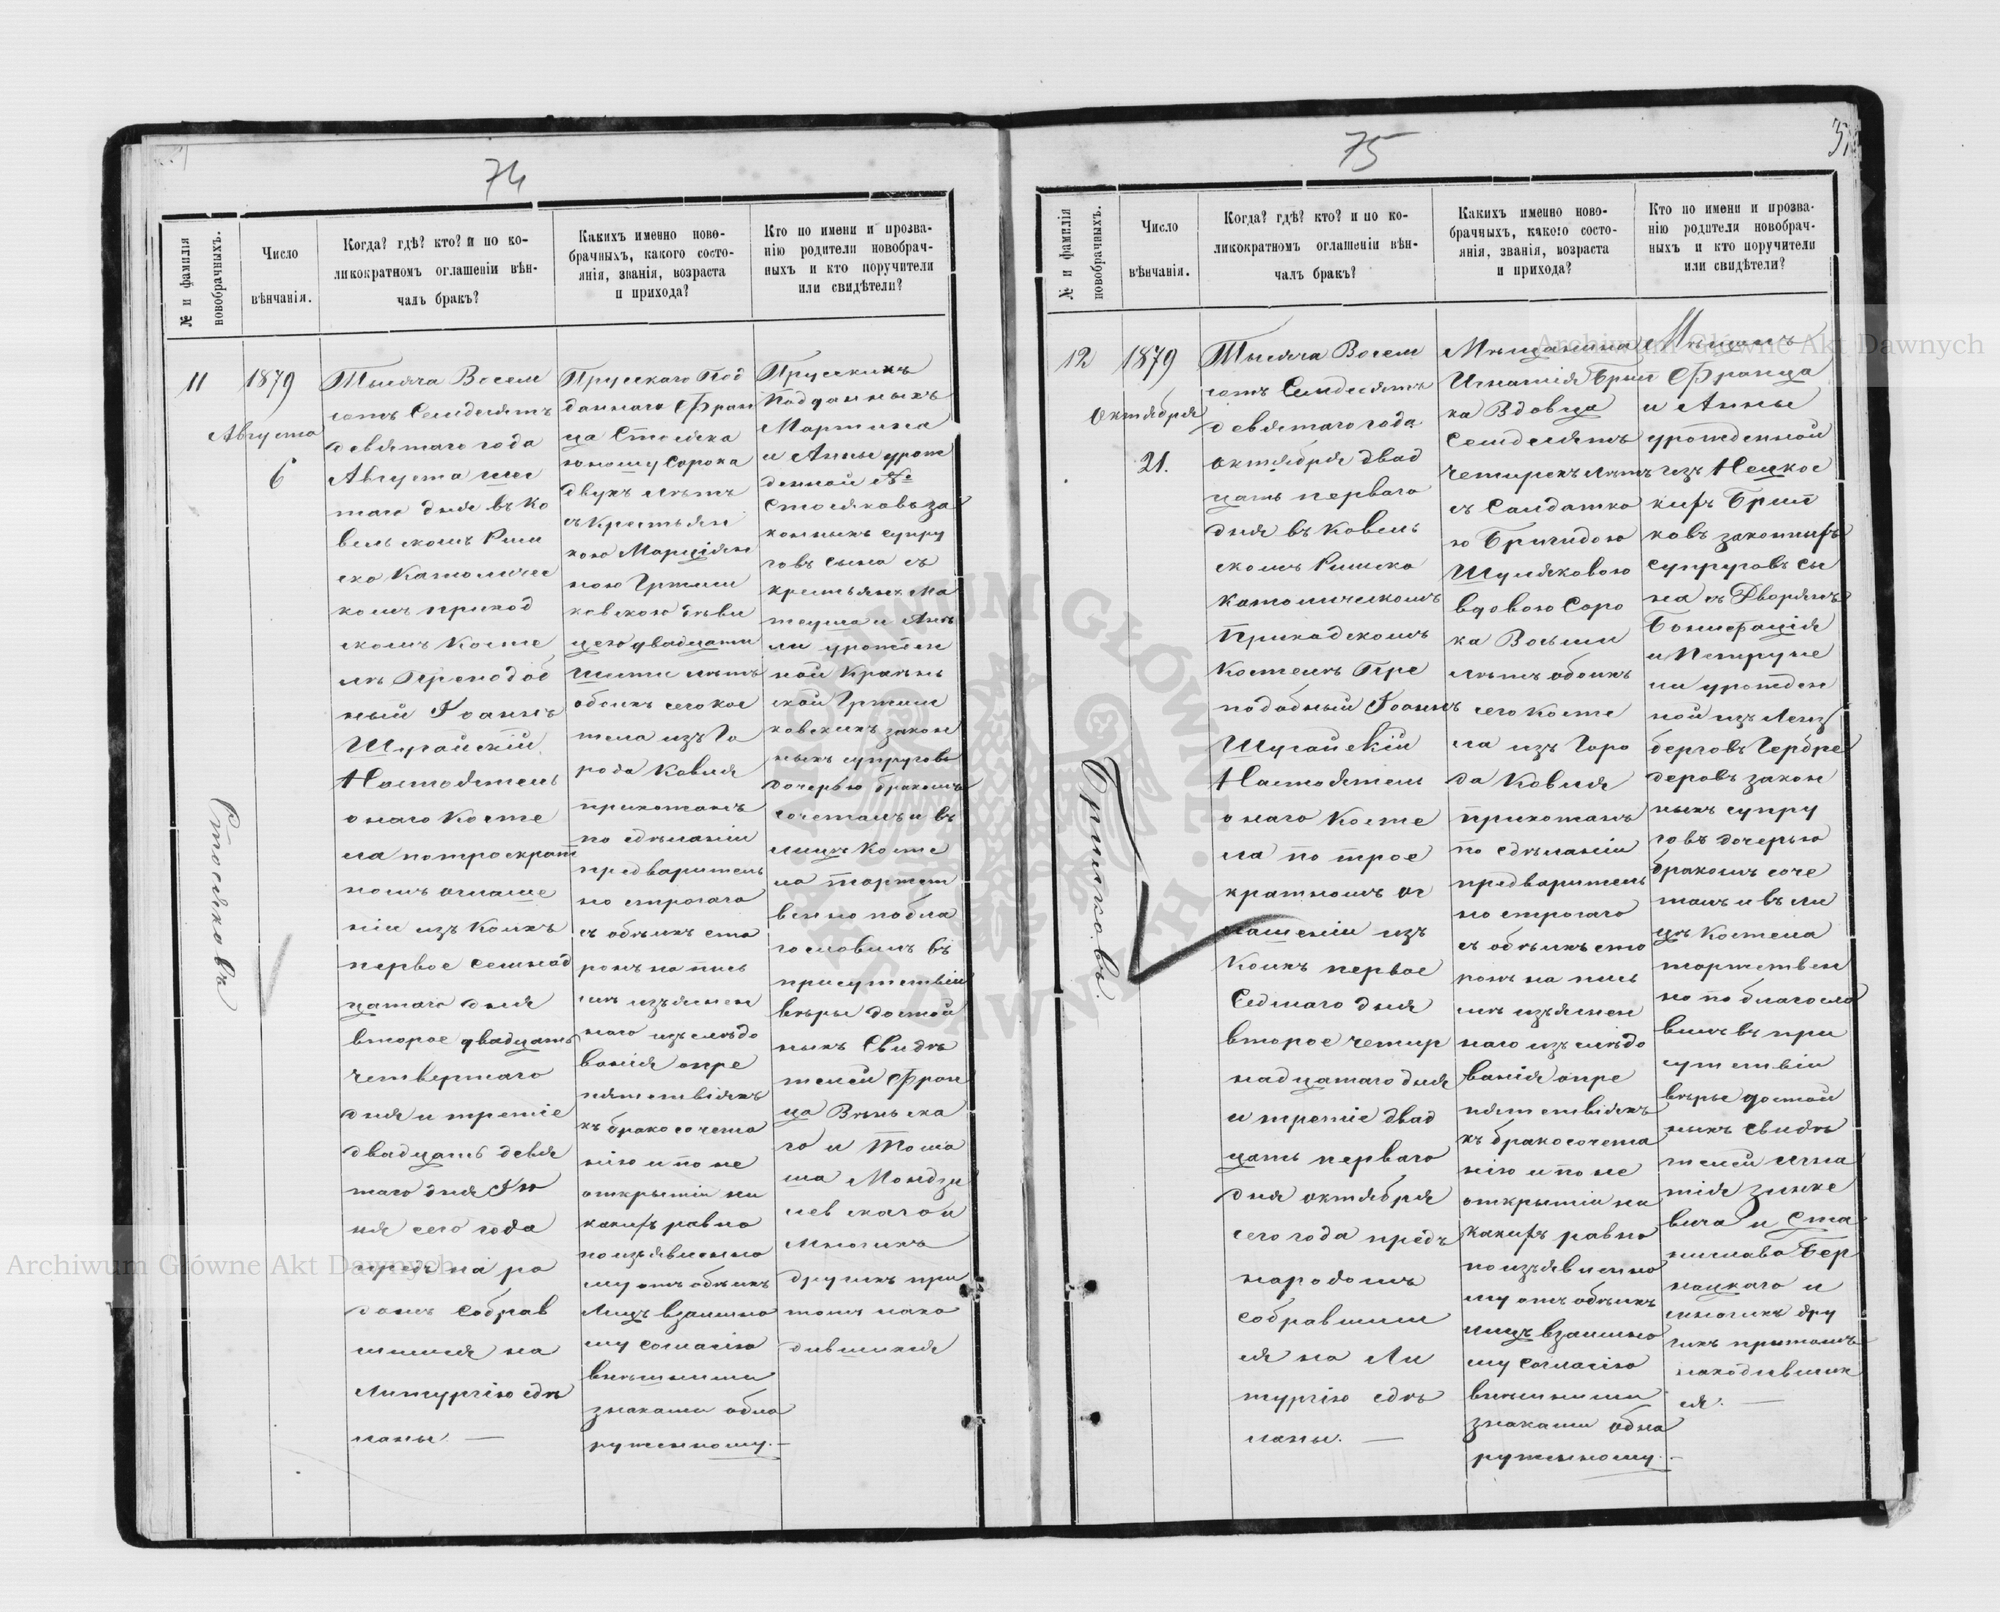 74
№ и фамилія
новобрачныхъ.
Число
вѣнчанія.
Когда? гдѣ? кто? и по ко-
ликократномъ оглашеніи вѣн-
чалъ бракъ?
Какихъ именно ново-
брачныхъ, какого состо-
янія, званія, возраста
и прихода?
Кто по имени и прозва-
нію родители новобрач-
ныхъ и кто поручители
или свидѣтели?
11
1879
Августа
6
Тысяча Восем
сотъ Семдесятъ
девятаго года
Августа шес
таго дня въ Ко
вельскомъ Рим
ско Католичес
комъ приход
скомъ Косте
лѣ Преподоб
ный Іоаннъ
Шугайскій
Настоятель
онаго Косте
ла по троекрат
номъ оглаше
ніи изъ коихъ
первое семнад
цатаго дня
второе двадцать
четвертаго
дня и третіе
двадцать девя
таго дня Ію
ня сего года
предъ на ро
домъ собрав
шимся на
Литургію сдѣ
ланы. —
Прусскаго Под
даннаго Фран
ца Столяка
юношу сорока
двухъ лѣтъ
съ крестьян
кою
двадцати
шести лѣтъ
обоихъ сего кос
тела изъ Го
рода Ковля
прихожанъ
по сдѣланіи
предваритель
но строгаго
съ обѣихъ сто
ронъ на пись
мѣ изъяснен
наго изъ слѣдо
ванія о пре
пятствіяхъ
къ бракосочета
нію и по не
открытіи ни
какихъ равно
по изъявленно
му отъ обѣихъ
Лицъ взаимно
му согласію
внѣшними
знаками обна
руженному. —
Прусскихъ
Подданныхъ
Мартина
и Анны урож
денной
Столяковъ за
конныхъ супру
говъ сына съ
крестьянъ Ма
теуша и
урожден
ной
закон
ныхъ супруговъ
дочерью бракомъ
сочеталъ и въ
лицѣ Косте
ла торжест
венно побла
гословилъ въ
присутствіи
вѣры достой
ныхъ Свидѣ
телей Фран
ца
го и Тома
ша
и
многихъ
другихъ при
томъ нахо
дившихся
Столяковъ
75
№ и фамилія
новобрачныхъ.
Число
вѣнчанія.
Когда? гдѣ? кто? и по ко-
ликократномъ оглашеніи вѣн-
чалъ бракъ?
Какихъ именно ново-
брачныхъ, какого состо-
янія, званія, возраста
и прихода?
Кто по имени и прозва-
нію родители новобрач-
ныхъ и кто поручители
или свидѣтели?
12
1879
Октября
21.
Тысяча Восем
сотъ Семдесятъ
девятаго года
Октября двад
цать перваго
дня въ Ковель
скомъ Римско
Католическомъ
Приходскомъ
Костелѣ Пре
подобный Іоаннъ
Шугайскій
Настоятель
онаго Косте
ла по трое
кратномъ ог
лашеніи изъ
Коихъ первое
Седмаго дня
второе четыр
надцатаго дня
и третіе двад
цать перваго
дня октября
сего года предъ
народомъ
собравшим
ся на Ли
тургію сдѣ
ланы. —
Мѣщанина
Игнатія
Вдовца
Семдесятъ
четырехъ лѣтъ
съ Солдатко
ю Бригидою
Шуляковою
вдовою Соро
ка Восьми
лѣтъ обоихъ
сего Косте
ла изъ Горо
да Ковля
Прихожанъ
по сдѣланіи
предваритель
но строгаго
съ обѣихъ сто
ронъ на пись
мѣ изъяснен
наго изъ слѣдо
ванія о пре
пятствіяхъ
къ бракосочета
нію и по не
открытіи ни
какихъ равно
по изъявленно
му отъ обѣихъ
лицъ взаимно
му согласію
внѣшними
знаками обна
руженному. —
Мѣщанъ
Франца
и Анны
урожденной
изъ
законныхъ
супруговъ сы
на съ Дворянъ
Бонифація
и Петруне
ли урожден
ной изъ
закон
ныхъ супру
говъ дочерью
бракомъ соче
талъ и въ ли
цѣ Костела
торжествен
но по благосло
вилъ въ при
сутствіи
вѣры достой
ныхъ Свидѣ
телей Игна
тія Зинке
вича и Ста
нислава Бер
нацкаго и
многихъ дру
гихъ притомъ
находивших
ся. —
Archiwum Główne Akt Dawnych
Archiwum Główne Akt Dawnych
ARCHIWUM GŁÓWNE AKT DAWNYCH